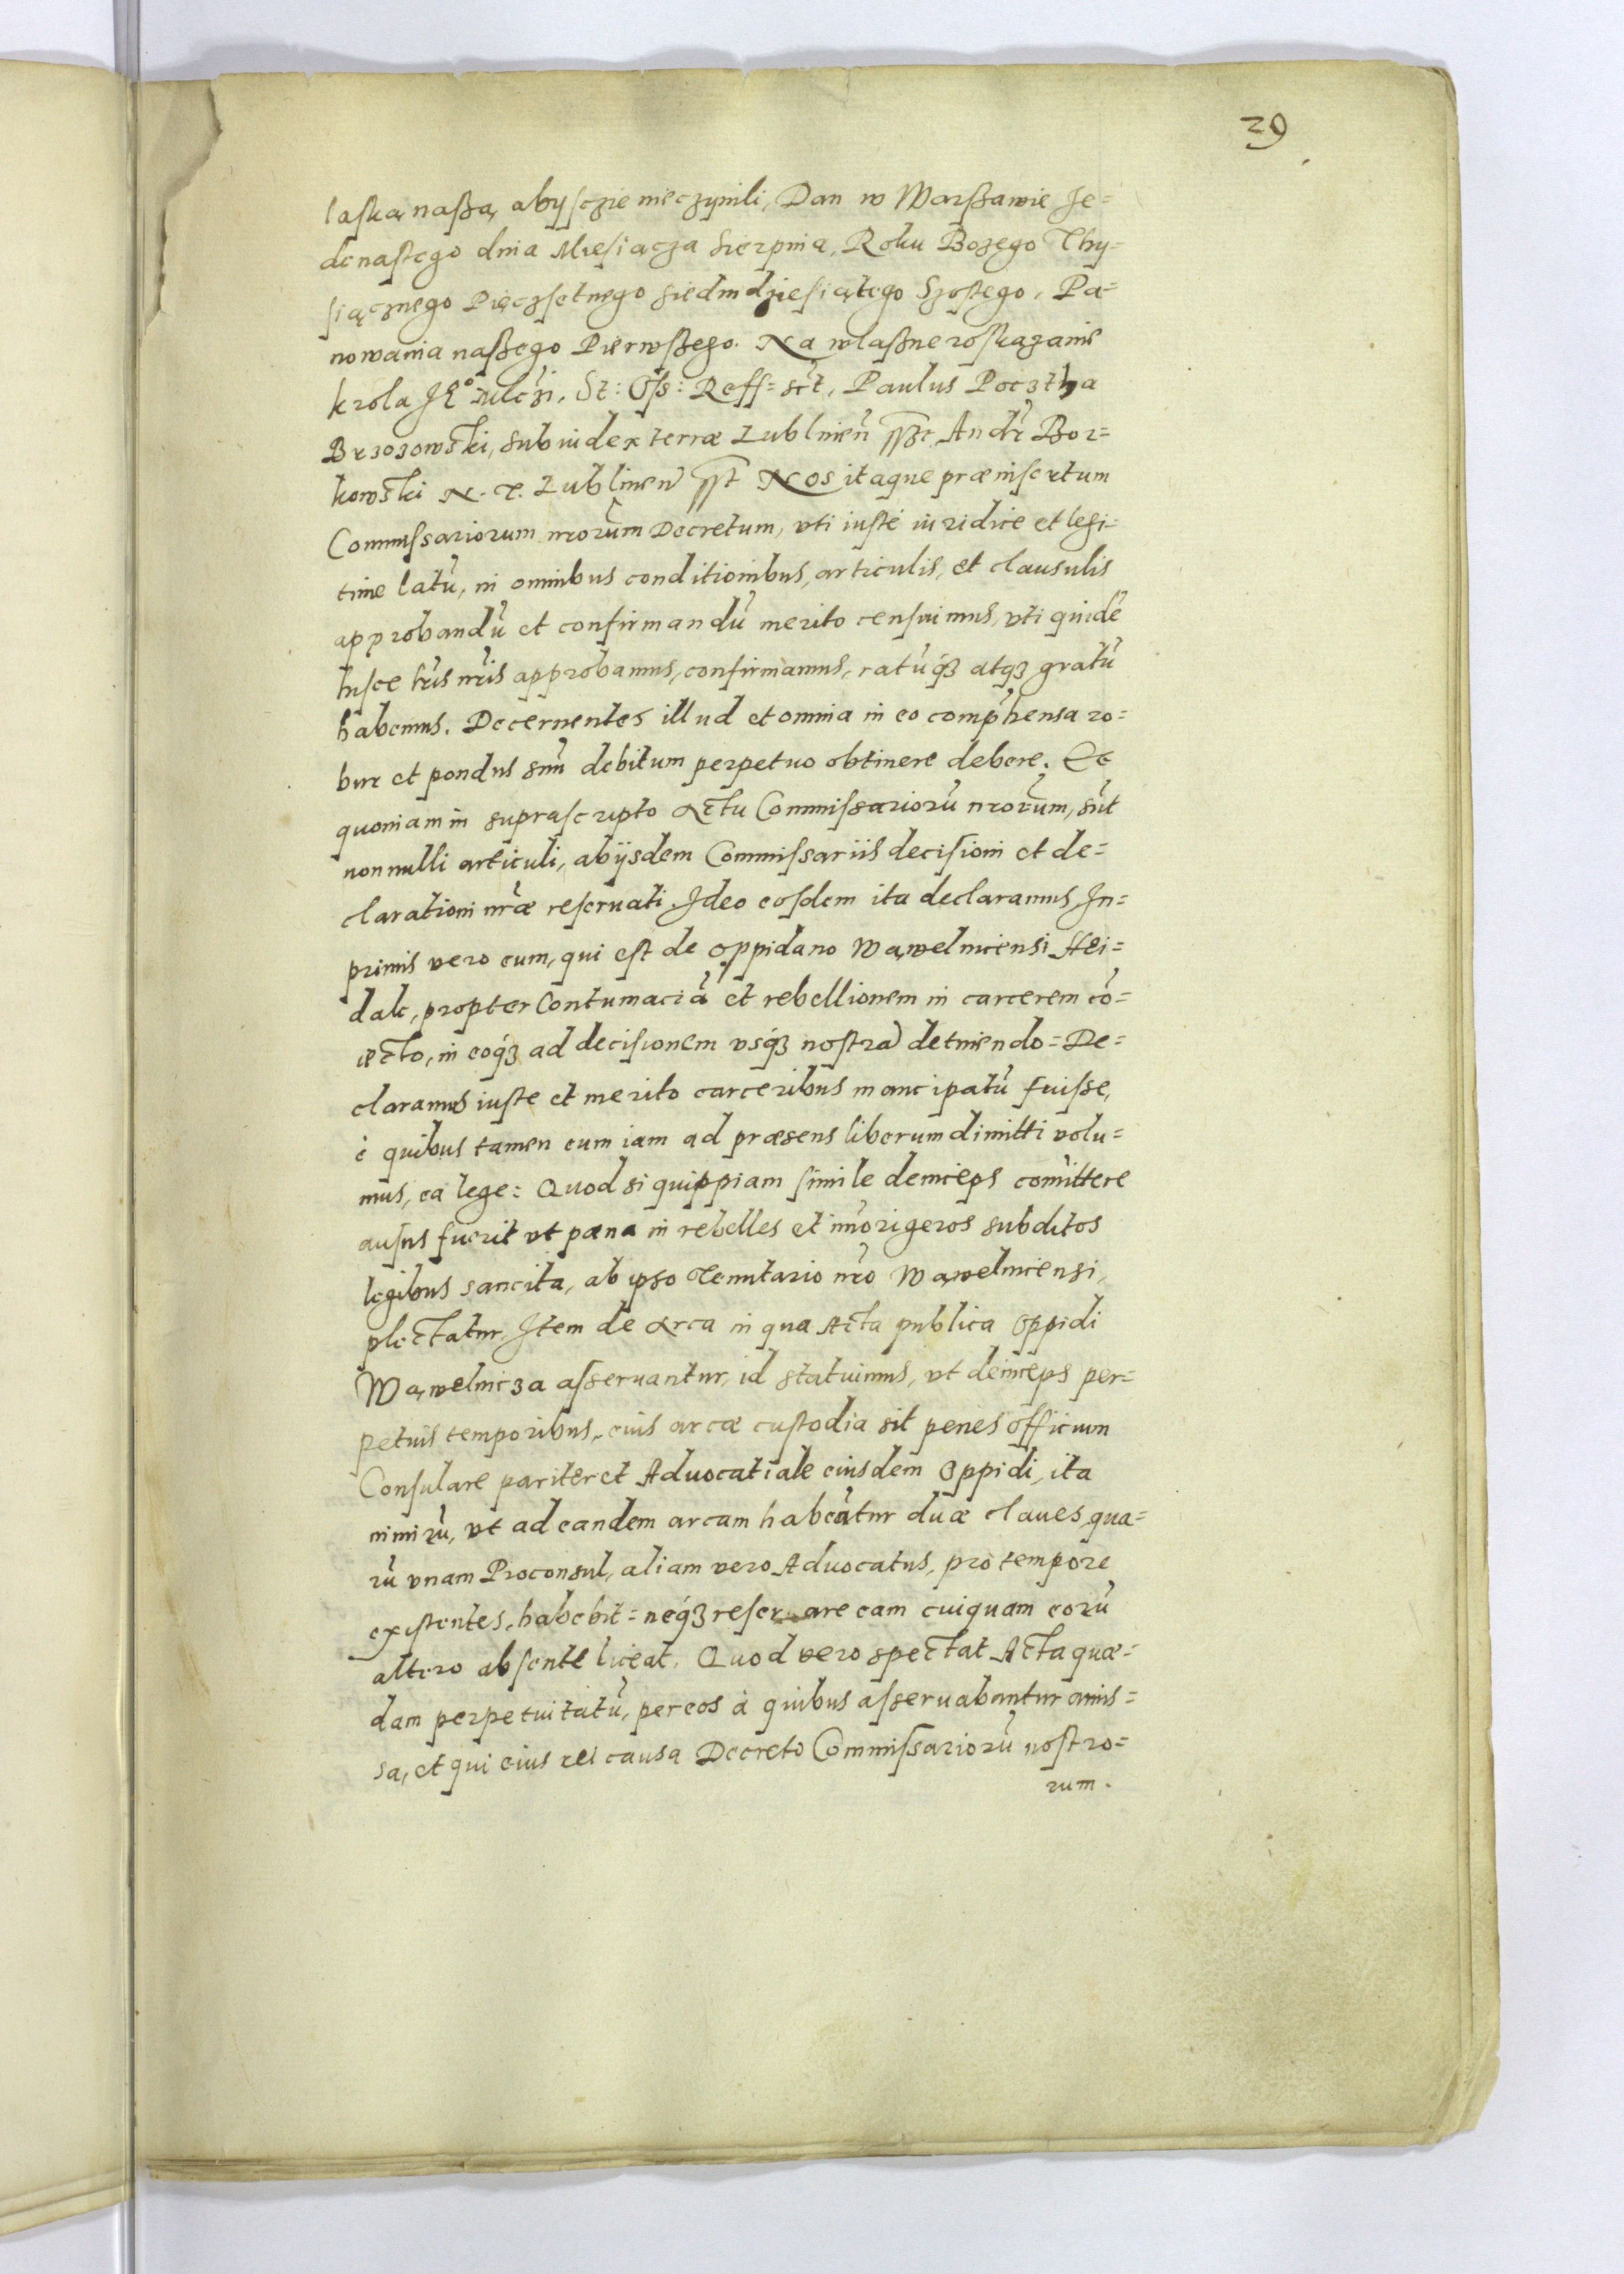 39
laską naßą abysczie nieczynili, Dan w Warßawie Je=
denastego dnia Miesiącza Sierpnia, Roku Bozego Thy=
siącznego Pięczsetnego siedmdziesiątego Szostego, Pa=
nowania naßego Pierwßego. Na wlaßne roskazanie
krola Je° Mczi, St: Oſs: Reff= sc̃t, Paulus Pocztha
Brzozowski, subiudex terræ Lublineñ sst, Andr̃ Bor=
kowski N. T. Lublineñ sst Nos itaque præinsertum
Commissariorum nr̃orum Decretum, vti iustè iuridice et legi=
time latũ, in omnibus conditionibus, articulis, et clausulis
approbandũ et confirmandũ merito censuimus, vti quidẽ
hisce lr̃is nr̃is approbamus, confirmamus, ratũq́ꝫ atqꝫ gratũ
habemus. Decernentes illud et omnia in eo comp̃hensa ro=
bur et pondus suũ debitum perpetuo obtinere debere. Et
quoniam in suprascripto Actu Commissariorũ nr̃orum, sũt
nonnulli articuli, ab ijsdem Commissariis decisioni et de=
clarationi nr̃æ reseruati. Ideo eosdem ita declaramus, In=
primis vero eum, qui est de oppidano Wąwelnicensi Hei=
dak, propter Contumaciã et rebellionem in carcerem cõ=
iecto, in eoq́ꝫ ad decisionem vsq́ꝫ nostrã detinendo= De=
claramus iuste et merito carceribus mancipatũ fuisse,
è quibus tamen eum iam ad præsens liberum dimitti volu=
mus, ea lege: Quod si quippiam simile deinceps comittere
ausus fuerit vt pæna in rebelles et im̃origeros subditos
legibus sancita, ab ipso Tenutario nr̃o Wąwelnicensi,
plectatur. Item de Arca in qua Acta publica Oppidi
Wąwelnicza asseruantur, id statuimus, vt deinceps per=
petuis temporibus, eius arcæ custodia sit penes officium
Consulare pariter et Aduocatiale eiusdem Oppidi, ita
nimirũ, vt ad eandem arcam habeãtur duæ claues, qua=
rũ vnam Proconsul, aliam vero Aduocatus, pro tempore
existentes, habebit= neq́ꝫ reseruare eam cuiquam eorũ
altero absente liceat. Quod vero spectat Acta quæ=
dam perpetuitatũ, per eos à quibus asseruabantur amis=
sa, et qui eius rei causa Decreto Commissariorũ nostro=
rum.